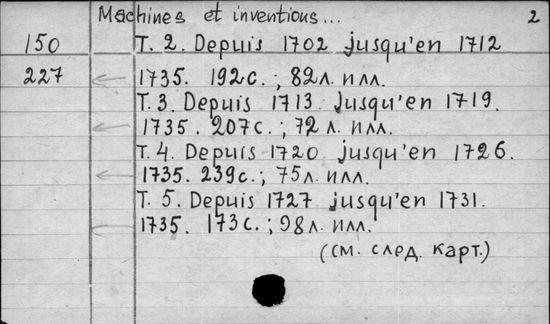 Machines et inventions... 2
150 T. 2. Depuis 1702 jusqu'en 1712
227 1735. 192с.; 82л. илл.
T. 3. Depuis 1713 jusqu'en 1719.
1735. 207с.; 72 л. илл.
T. 4. Depuis 1720 jusqu'en 1726.
1735. 239с.; 75л. илл.
T. 5. Depuis 1727 jusqu'en 1731.
1735. 173с.; 98л. илл.
(см. след. карт.)